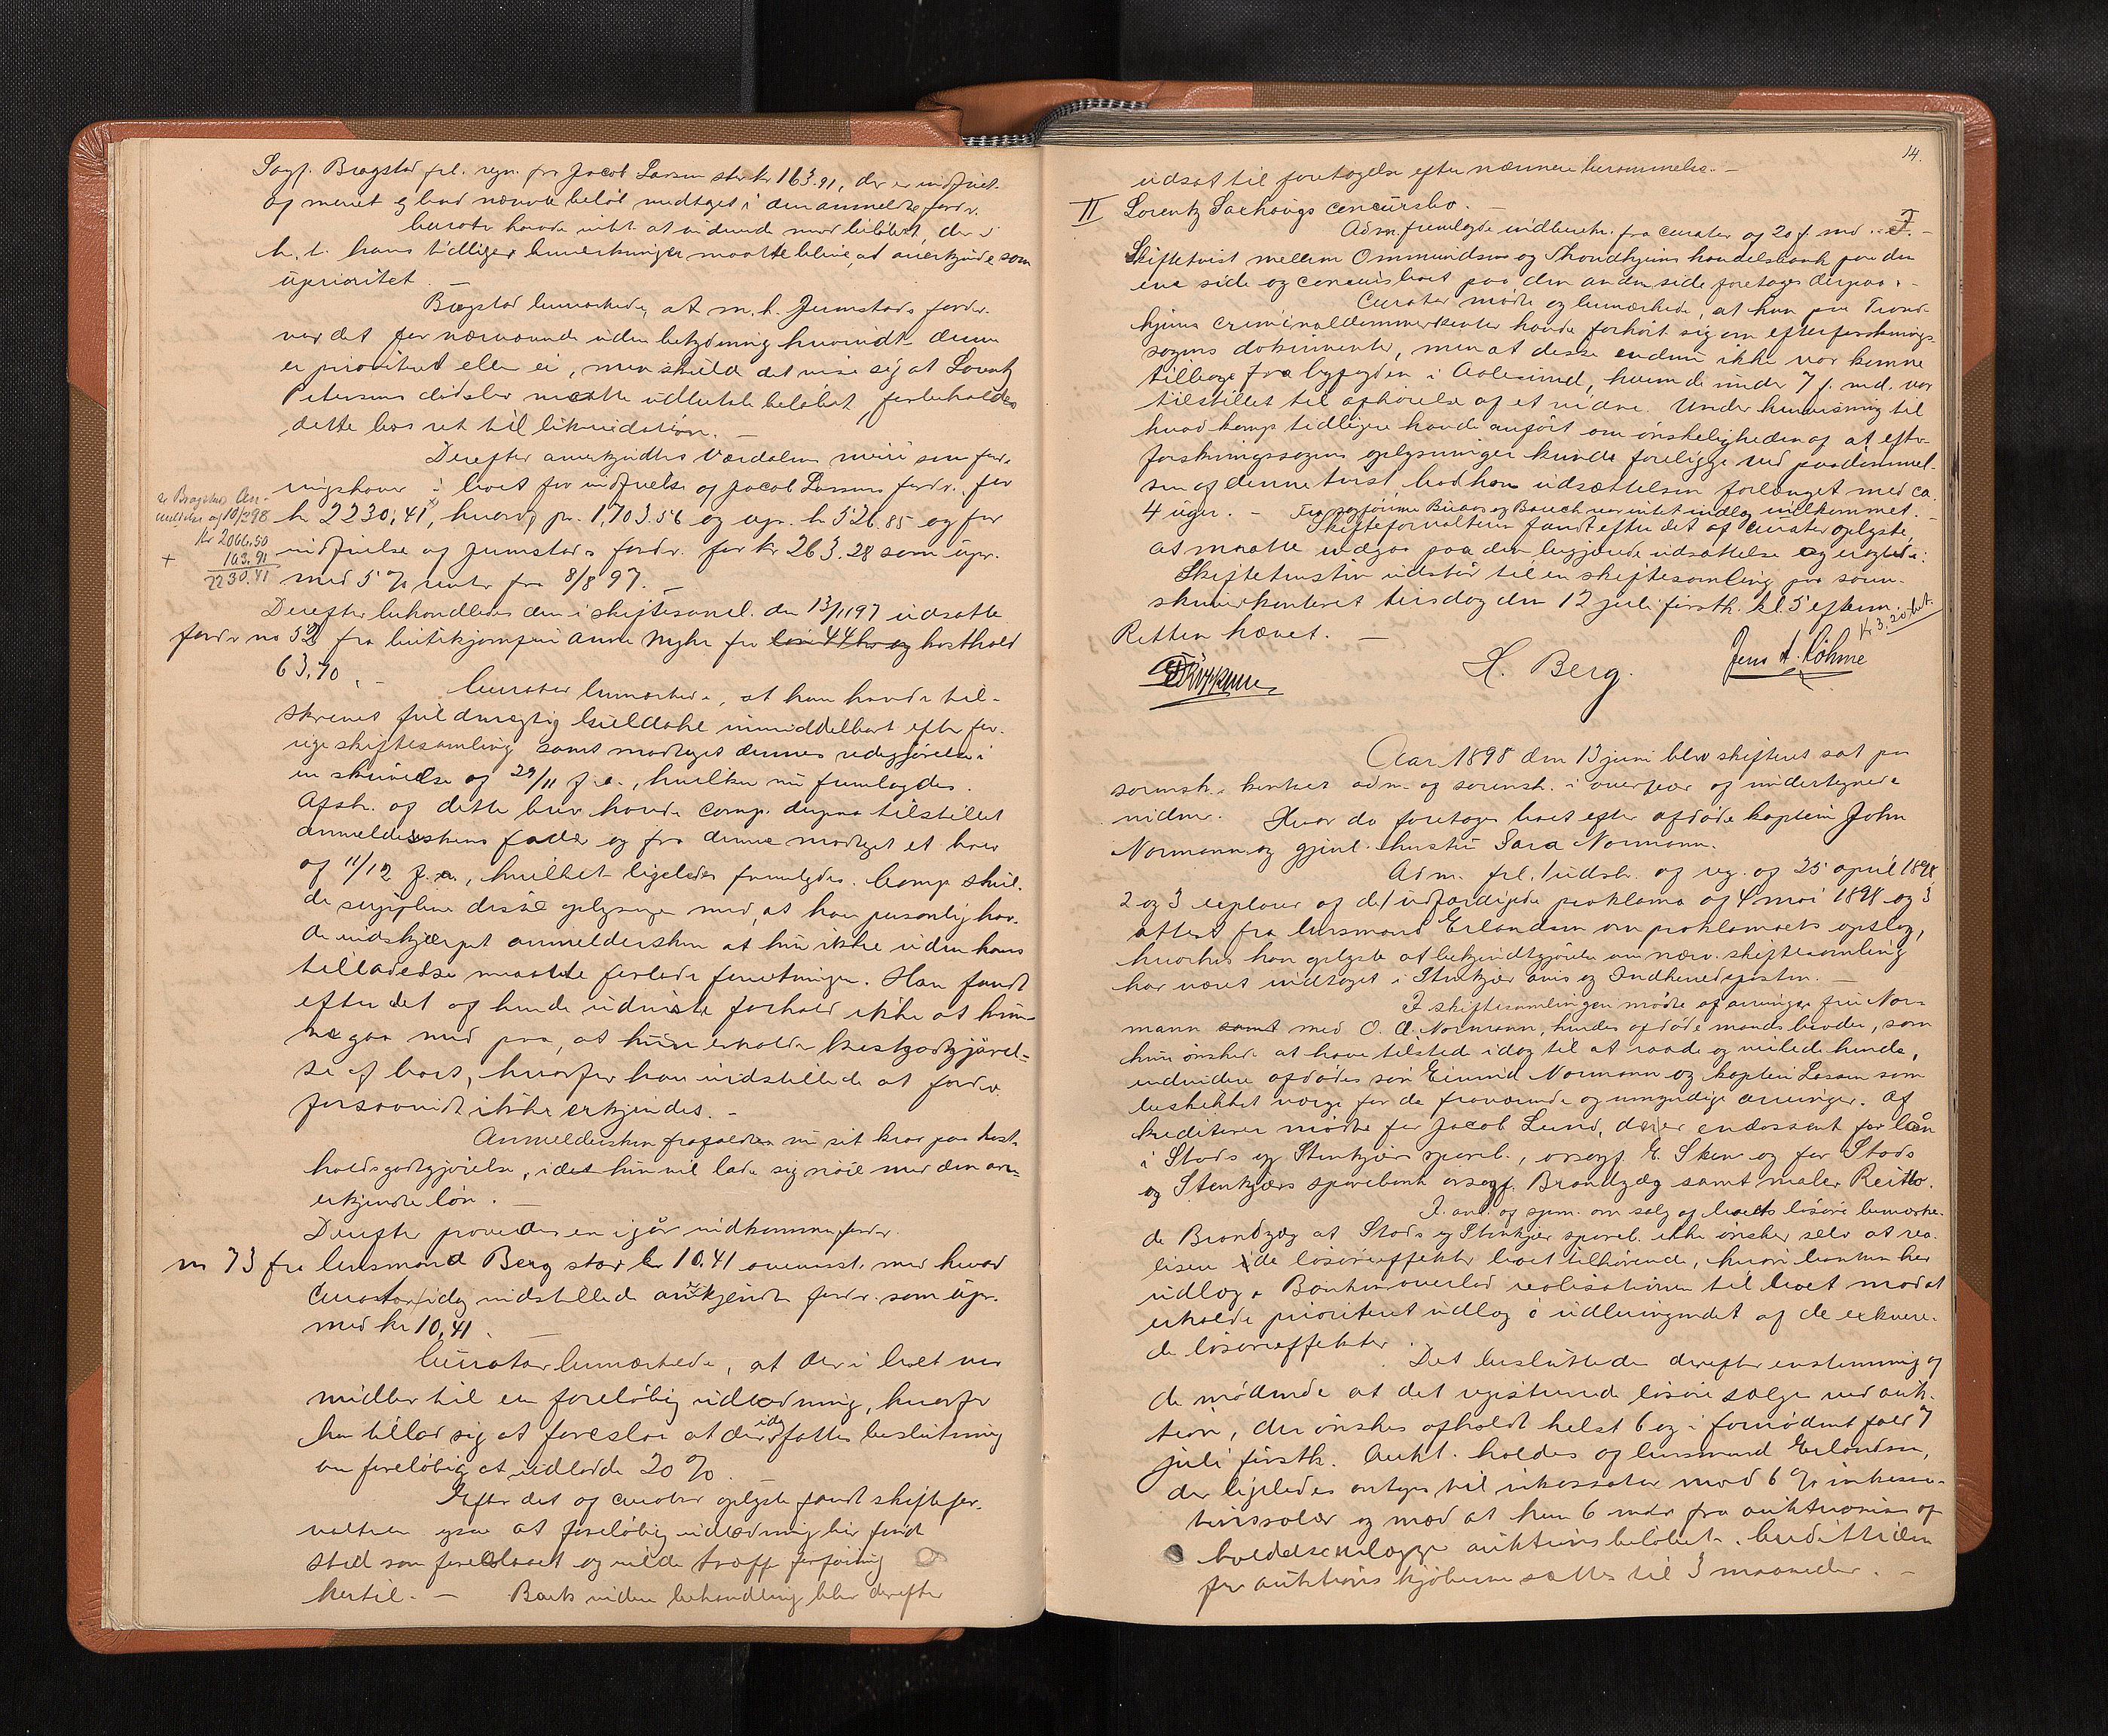 Sagf. Bragstad frl. regn. fra Jacob Larsen stor kr 163.91, der er indfriet
af meiriet og bad nævnte beløb medtaget i den anmeldte fordr.
Curator havde intet at indvende mod beløbet, der i
h. t. hans tidligere bemerkninger maatte blive at anerkjende som
uprioritet.
Bragstad bemærkede, at m. h. t. Jermstads fordr.
var det for nærværende uden betydning hvorvidt denne
er prioritert eller ei, men skulde det vise sig at Lorentz
Petersens dødsbo maatte udbetale beløbet forbeholdes
dette bos ret til likvidation. —
Derefter anerkjendtes Værdalens meieri som ford-
ringshaver i boet for indfrielse af Jacob Larsens fordr. for
kr 2230,41, hvoraf pr. 1,703.56 og upr. kr 526.85 og for
indfrielse af Jermstads fordr. for kr 263.28 som upr.
med 5 % renter fra 8/8 97. —
se Bragstads An-
meldelse af 10/2 98
kr 2066.50
+ 163.91
2230.41
Derefter behandledes den i skiftesaml. den 13/11 97 udsatte
fordr no 52 fra butikjomfru Anne Myhr for løn 44 kr og kosthold
63.70. —
Curator bemærkede, at han havde til-
skrevet fuldmægtig Kuldahl umiddelbart efter for-
rige skiftesamling samt modtaget dennes redegjørelse i
en skrivelse af 29/11 f. a., hvilken nu fremlagdes.
Afskr. af dette brev havde comp. dernæst tilstillet
anmelderskens fader og fra denne modtaget et brev
af 11/12 f. a., hvilket ligeledes fremlagdes. Comp. skul-
de supplere disse oplysninger med, at han personlig hav-
de indskjærpet anmeldersken at hun ikke uden hans
tilladelse maatte forlade forretningen. Han fandt
efter det af hende udviste forhold ikke at kun-
ne gaa med paa, at hun erholder kostgodtgjørel-
se af boet, hvorfor han indstillede at fordr.
forsaavidt ikke erkjendes. —
Anmeldersken frafaldt nu sit krav paa kost-
holdsgodtgjørelse, idet hun vil lade sig nøie med den an-
erkjendte løn. —
Derefter prøvedes en igår indkommen fordr.
no 73 fra lensmand Berg stor kr 10.41 overensst. med hvad
Curator idag indstillede anerkjendtes fordr. som upr.
med kr 10,41. —
Curator bemærkede, at der i boet var
midler til en foreløbig udlodning, hvorfor
han tillod sig at foreslaa at der idag fattes beslutning
om foreløbig at udlodde 20 %. —
Efter det af curator oplyste fandt skiftefor-
valteren ogsaa at foreløbig udlodning bør finde
sted som foreslaaet og vilde træffe forføining
hertil. — Boets videre behandling blev derefter
14.
udsat til foretagelse efter nærmere berammelse. —
II Lorentz Saxhaugs concursbo. —
Adm. fremlagde indberetn. fra curator af 20 f. md. —
Skiftetvist mellem Ommundsen og Throndhjems handelsbank paa den
ene side og concursboet paa den anden side foretages derpaa. —
Curator mødte og bemærkede, at han paa Trond-
hjems criminaldommerkontor havde forhørt sig om efterforsknings-
sagens dokumenter, men at disse endnu ikke var komne
tilbage fra byfogden i Aalesund, hvem de under 7 f. md. var
tilstillet til afhørelse af et vidne. Under henvisning til
hvad komp tidligere havde anført om ønskeligheden af at efter-
forskningssagens oplysninger kunde foreligge ved paadømmel-
sen af denne tvist bad han udsættelsen forlænget med ca.
4 uger. — Fra sagførerne Buaas og Bauck var intet indlæg indkommet. —
Skifteforvalteren fandt efter det af curator oplyste,
at maatte indgaa paa den begjærede udsættelse og eragtede:
Skiftetvisten udstår til en skiftesamling paa soren-
skriverkontoret tirsdag den 12 juli førstk. kl. 5 efterm.
Retten hævet. —
Kr 3.20 bet.
H. Berg. Jens A. Bøhme
Aar 1898 den 13 juni blev skifteret sat paa
sorensk. kontoret adm. af sorensk. i overvær af undertegnede
vidner. Hvor da foretages boet efter afdøde kaptein John
Normann og gjenl. hustru Sara Normann.
Adm. frl. 1 udskr. af reg. af 25 april 1898
2 og 3 exeplarer af det udfærdigede proklama af 4 mai 1898 og 3
attest fra lensmand Erlandsen om proklamaets opslag,
hvorhos han oplyste at bekjendtgjørelse om nærv. skiftesamling
har været indtaget i Stenkjær avis og Indherredsposten. —
I skiftesamlingen mødte af arvinger fru Nor-
mann samt med O. A. Normann, hendes afdøde mands broder, som
hun ønskede at have tilstede idag til at raade og veilede hende,
endvidere afdødes søn Eivind Normann og kaptein Lassen som
beskikket værge for de fraværende og umyndige arvinger. Af
kreditorer mødte for Jacob Lund, der er endossent for lån
i Stods og Stenkjærs spareb., orsagf. E. Sken og for Stods
og Stenkjærs sparebank orsagf. Brandtzæg samt maler Reitlo.
I anl. af spm. om salg af boets løsøre bemærke-
de Brandtzæg at Stods og Stenkjær spareb. ikke ønsker selv at rea-
lisere de løsøreeffekter boet tilhørende, hvori banken har
udlæg. Banken overlod realisationen til boet mod at
erholde prioriteret udlæg i udbringendet af de exkvere-
de løsøreeffekter.
Det besluttedes derefter enstemmig af
de mødende at det registrerede løsøre sælges ved auk-
tion, der ønskes afholdt helst 6 og i fornødent fald 7
juli førstk. Aukt. holdes af lensmand Erlandsen,
der ligeledes antages til inkassator mod 6 % inkassa-
tionssalær og mod at han 6 mdr fra auktionens af-
holdelse indlægge auktionsbeløbet. Kredittiden
for auktions kjøberne sættes til 3 maaneder. —